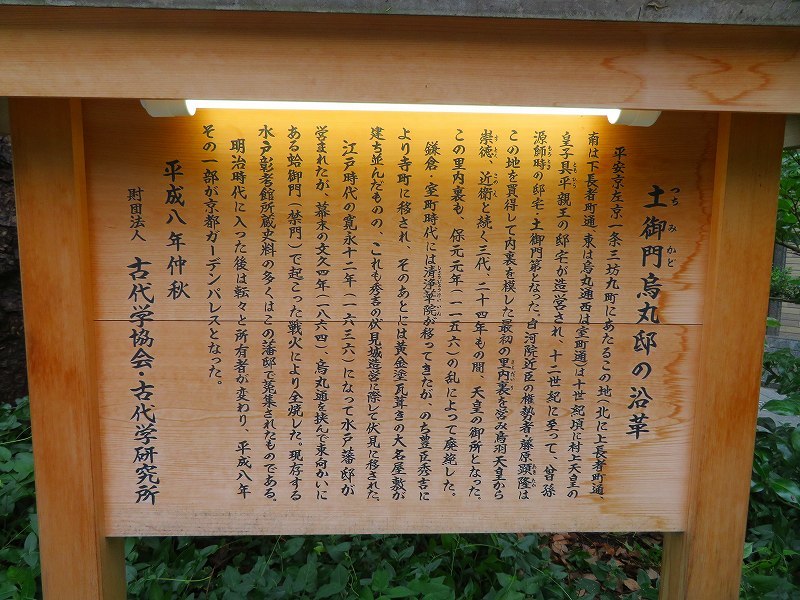 土御門烏丸邸の沿革
平安京左京一条三坊九町にあたるこの地（北に上長者町通、
南は下長者町通、東は烏丸通西は室町通）は十世紀頃に村上天皇の
皇子具平親王の邸宅が造営され、十二世紀に至って、曾孫
源師時の邸宅・土御門第となった。白河院近臣の権勢者藤原顕隆は
この地を買得して内裏を模した最初の里内裏を営み鳥羽天皇から
崇徳、近衛と続く三代、二十四年もの間、天皇の御所となった。
この里内裏も、保元元年（一一五六）の乱によって廃絶した。
鎌倉・室町時代には清浄華院が移ってきたが、のち豊臣秀吉に
より寺町に移され、そのあとには黄金塗瓦葺きの大名屋敷が
建ち並んだものの、これも秀吉の伏見城造営に際して伏見に移された。
江戸時代の寛永十二年（一六三六）になって水戸藩邸が
営まれたが、幕末の文久四年（一八六四）、烏丸通を挟んで東向かいに
ある蛤御門（禁門）で起こった戦火により全焼した。現存する
水戸彰考館所蔵史料の多くはこの藩邸で蒐集されたものである。
明治時代に入った後は転々と所有者が変わり、平成八年
その一部が京都ガーデンパレスとなった。
平成八年仲秋
財団法人 古代学協会・古代学研究所